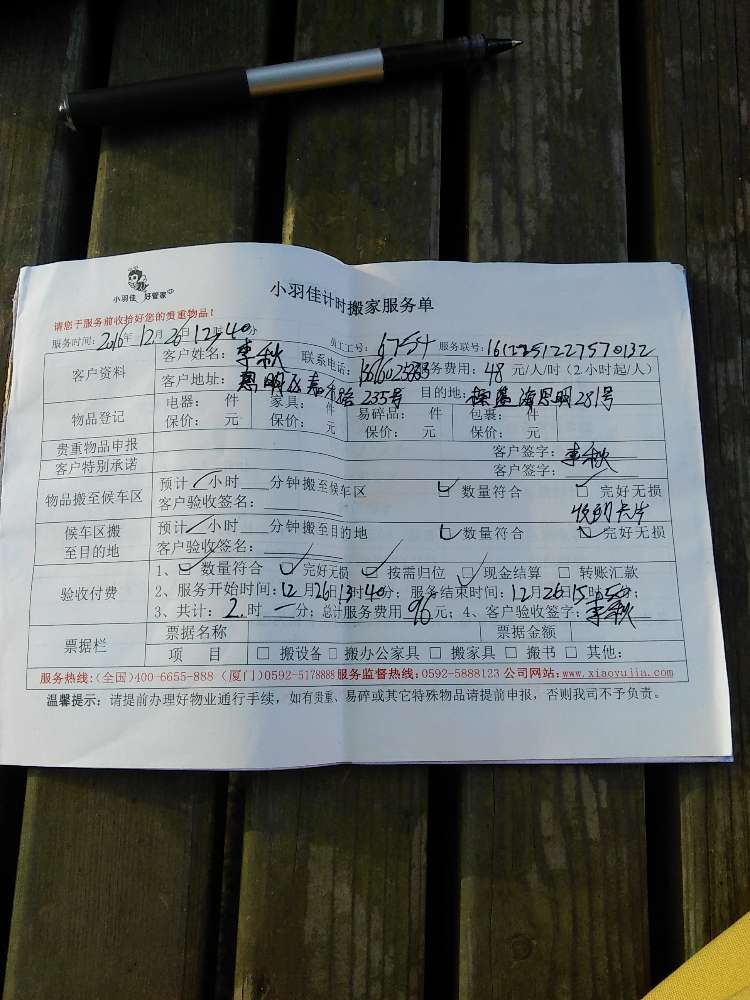 小羽佳 好管家
小羽佳计时搬家服务单
请您于服务前收拾好您的贵重物品!
服务时间:2016年12月26日12时40分 员工工号:6754 服务联号:
客户资料 客户姓名:李秋 联系电话: 服务费用:48元/人/时(2小时起/人)
客户地址:思明区嘉禾路235号 目的地: 海思明281号
物品登记 电器: 件 家具: 件 易碎品: 件 包裹: 件
保价: 元 保价: 元 保价: 元 保价: 元
贵重物品申报 客户签字:李秋
客户特别承诺 客户签字:
物品搬至候车区 预计 小时 分钟搬至候车区 数量符合 完好无损
客户验收签名:
收到卡片
候车区搬至目的地 预计 小时 分钟搬至目的地 数量符合 完好无损
客户验收签名:
验收付费 1、数量符合 完好无损 按需归位 现金结算 □ 转账汇款
2、服务开始时间:12月26日13时40分;服务结束时间:12月26日15时 分;
3、共计:2时一分;总计服务费用96元;4、客户验收签字:李秋
票据栏 票据名称 票据金额
项 目 □ 搬设备 □ 搬办公家具 □ 搬家具 □ 搬书 □ 其他:
服务热线:(全国)400-6655-888 (厦门)0592-5178888 服务监督热线:0592-5888123 公司网站:www.xiaoyujia.com
温馨提示:请提前办理好物业通行手续,如有贵重、易碎或其它特殊物品请提前申报,否则我司不予负责。